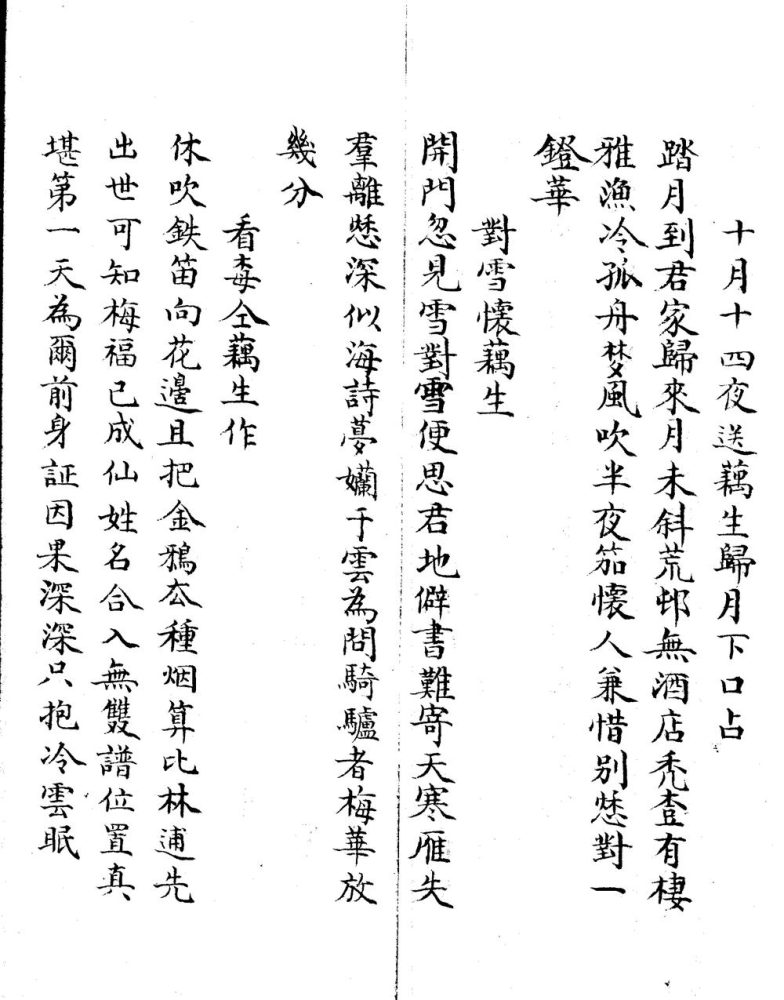 十月十四夜送藕生歸月下口占
踏月到君家歸來月未斜荒邨無酒店禿壴有棲
雅漁冷孤舟梦風吹半夜笳懷人兼惜別愁對一
鐙華
對雪懷藕生
開門忽見雪對雪便思君地僻書難寄天寒雁失
羣離愁深似海詩夢嬾于雲為問騎驢者梅華放
幾分
看毐仝藕生作
休吹鉄笛向花邊且把金鴉夳種烟算比林逋先
出世可知梅福已成仙姓名合入無雙譜位置真
堪第一天為爾前身証因果深深只抱冷雲眠